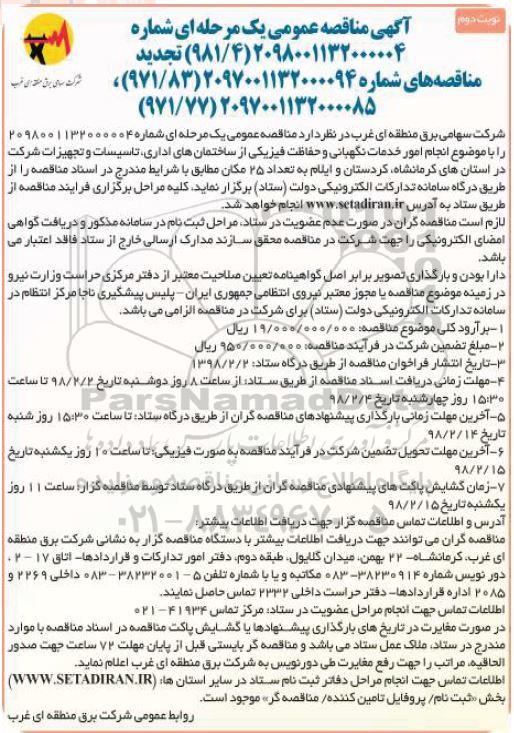 نوبت دوم
آگهی مناقصه عمومی یک مرحله ای شماره
۲۰۹۸۰۰۱۱۳۲۰۰۰۰۰۴ (۹۸۱/۴) تجدید
مناقصه‌های شماره ۲۰۹۷۰۰۱۱۳۲۰۰۰۰۹۴ (۹۷۱/۸۳) ،
۲۰۹۷۰۰۱۱۳۲۰۰۰۰۸۵ (۹۷۱/۷۷)
شرکت سهامی برق منطقه ای غرب
شرکت سهامی برق منطقه ای غرب در نظر دارد مناقصه عمومی یک مرحله ای شماره ۲۰۹۸۰۰۱۱۳۲۰۰۰۰۰۴
را با موضوع انجام امور خدمات نگهبانی و حفاظت فیزیکی از ساختمان های اداری، تاسیسات و تجهیزات شرکت
در استان های کرمانشاه، کردستان و ایلام به تعداد ۲۵ مکان مطابق با شرایط مندرج در اسناد مناقصه را از
طریق درگاه سامانه تدارکات الکترونیکی دولت (ستاد) برگزار نماید، کلیه مراحل برگزاری فرایند مناقصه از
طریق ستاد به آدرس www.setadiran.ir انجام خواهد شد.
لازم است مناقصه گران در صورت عدم عضویت در ستاد، مراحل ثبت نام در سامانه مذکور و دریافت گواهی
امضای الکترونیکی را جهت شرکت در مناقصه محقق سازند مدارک ارسالی خارج از ستاد فاقد اعتبار می
باشد.
دارا بودن و بارگذاری تصویر برابر اصل گواهینامه تعیین صلاحیت معتبر از دفتر مرکزی حراست وزارت نیرو
در زمینه موضوع مناقصه یا مجوز معتبر نیروی انتظامی جمهوری ایران - پلیس پیشگیری ناجا مرکز انتظام در
سامانه تدارکات الکترونیکی دولت (ستاد) برای شرکت در مناقصه الزامی می باشد.
۱-برآورد کلی موضوع مناقصه: ۱۹/۰۰۰/۰۰۰/۰۰۰ ریال
۲-مبلغ تضمین شرکت در فرآیند مناقصه: ۹۵۰/۰۰۰/۰۰۰ ریال
۳-تاریخ انتشار فراخوان مناقصه از طریق درگاه ستاد: ۱۳۹۸/۲/۲
۴-مهلت زمانی دریافت اسناد مناقصه از طریق ستاد: از ساعت ۸ روز دوشنبه تاریخ ۹۸/۲/۲ تا ساعت
۱۵:۳۰ روز چهارشنبه تاریخ ۹۸/۲/۴
۵-آخرین مهلت زمانی بارگذاری پیشنهادهای مناقصه گران از طریق درگاه ستاد: تا ساعت ۱۵:۳۰ روز شنبه
تاریخ ۹۸/۲/۱۴
۶-آخرین مهلت تحویل تضمین شرکت در فرآیند مناقصه به صورت فیزیکی: تا ساعت ۱۰ روز یکشنبه تاریخ
۹۸/۲/۱۵
۷-زمان گشایش پاکت های پیشنهادی مناقصه گران از طریق درگاه ستاد توسط مناقصه گزار: ساعت ۱۱ روز
یکشنبه تاریخ ۹۸/۲/۱۵
آدرس و اطلاعات تماس مناقصه گزار جهت دریافت اطلاعات بیشتر:
مناقصه گران می توانند جهت دریافت اطلاعات بیشتر با دستگاه مناقصه گزار به نشانی شرکت برق منطقه
ای غرب، کرمانشاه- ۲۲ بهمن، میدان گلایول، طبقه دوم، دفتر امور تدارکات و قراردادها- اتاق ۱۷ - ۲ ،
دور نویس شماره ۳۸۲۳۰۹۱۴-۰۸۳ مکاتبه و یا با شماره تلفن ۵ - ۳۸۲۳۲۰۰۱-۰۸۳ داخلی ۲۲۶۹ و
۲۰۸۵ اداره قراردادها- دفتر حراست داخلی ۲۳۳۲ تماس حاصل نمایند.
اطلاعات تماس جهت انجام مراحل عضویت در ستاد: مرکز تماس ۴۱۹۳۴-۰۲۱
در صورت مغایرت در تاریخ های بارگذاری پیشنهادها یا گشایش پاکت مناقصه در اسناد مناقصه با موارد
مندرج در ستاد، ملاک عمل ستاد می باشد و مناقصه گر بایستی قبل از پایان مهلت ۷۲ ساعت جهت صدور
الحاقیه، مراتب را جهت رفع مغایرت طی دورنویس به شرکت برق منطقه ای غرب اعلام نماید.
اطلاعات تماس جهت انجام مراحل دفاتر ثبت نام ستاد در سایر استان ها: (WWW.SETADIRAN.IR)
بخش «ثبت نام/ پروفایل تامین کننده/ مناقصه گر» موجود است.
روابط عمومی شرکت برق منطقه ای غرب
ParsNamadData
۰۲۱-۸۸۳۴۹۶۷۰-۵